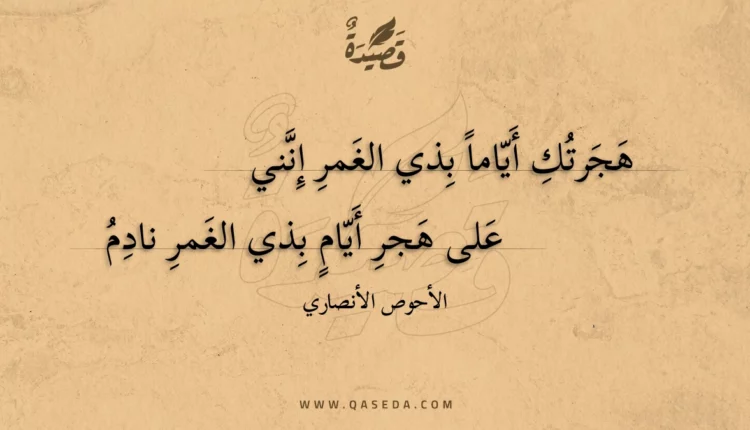 قَصِيْدَةٌ
هَجَرتُكِ أَيّاماً بِذي الغَمرِ إِنَّني
عَلى هَجرِ أَيّامٍ بِذي الغَمرِ نادِمُ
الأحوص الأنصاري
WWW.QASEDA.COM